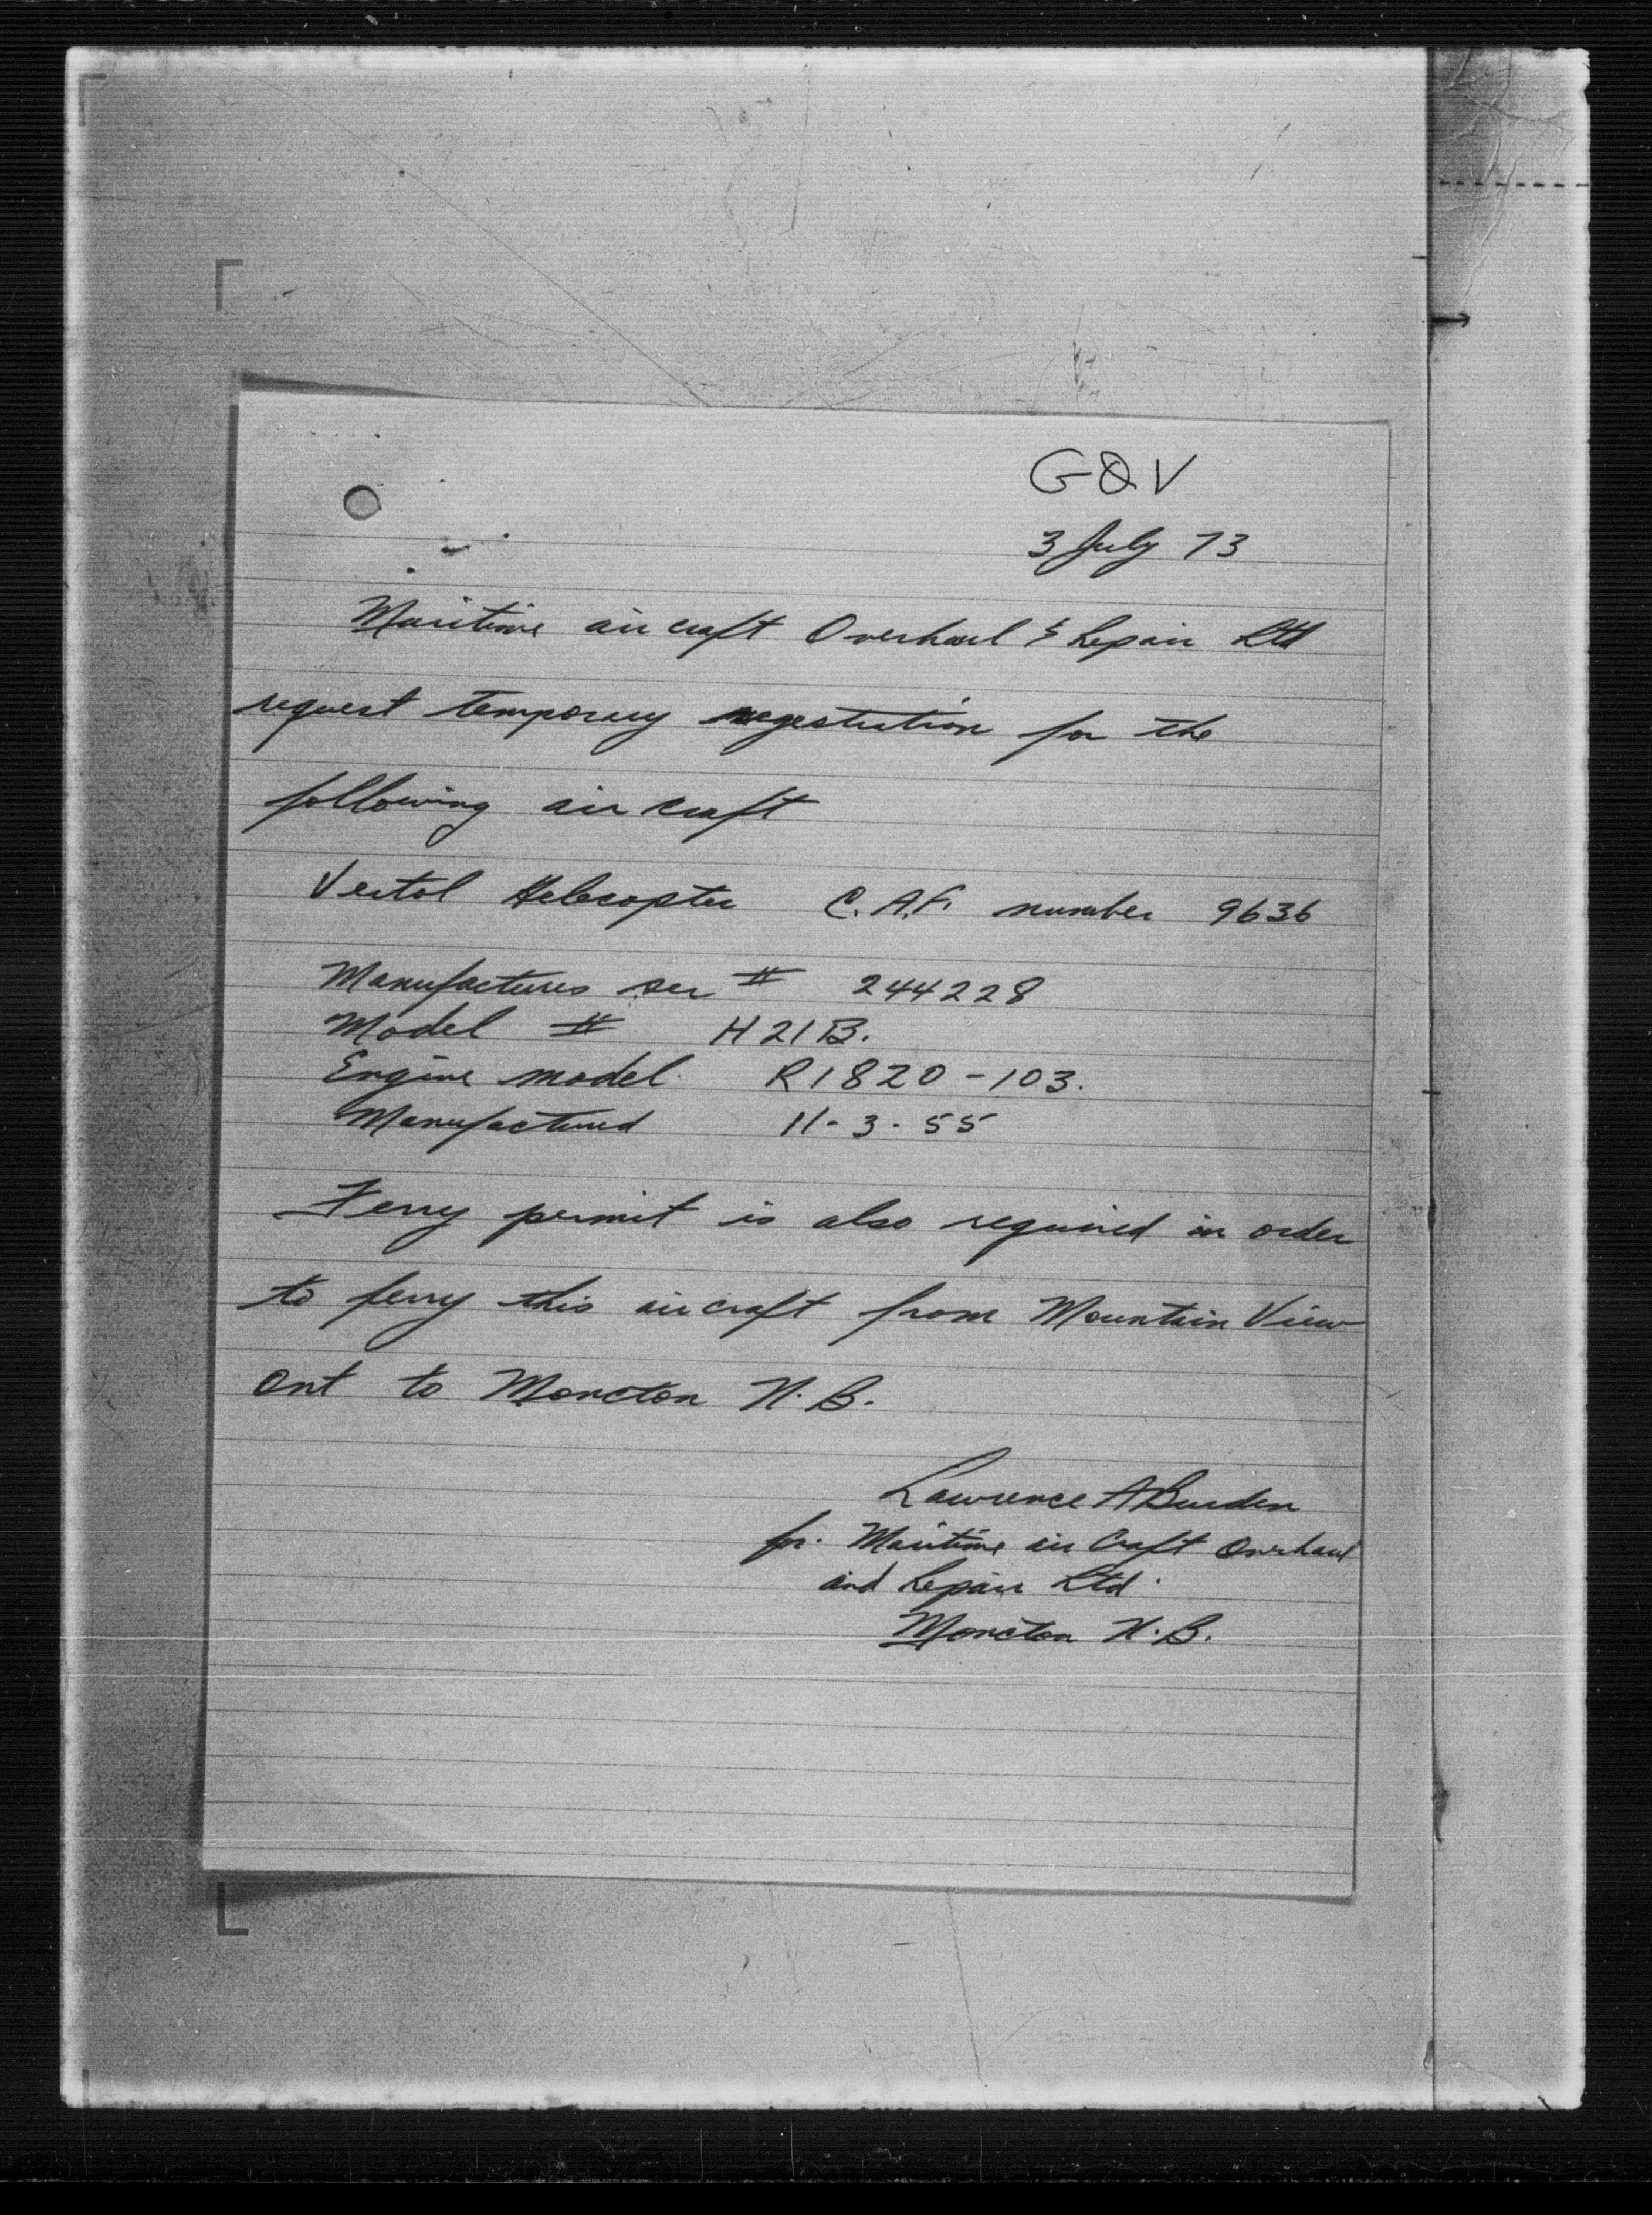 GQV
3 July 73
Maritime air craft Overhaul & Repair Ltd
request temporary regestration for the
following air craft
Vertol Helecopter C.A.F. number 9636
Manufactures ser # 244228
Model # H21B.
Engine model R1820-103.
Manufactured 11-3-55
Ferry permit is also required in order
to ferry this air craft from Mountain View
Ont to Moncton N.B.
Lawrence A Burden
for. Maritime air Craft Overhaul
and Repair Ltd.
Moncton N.B.